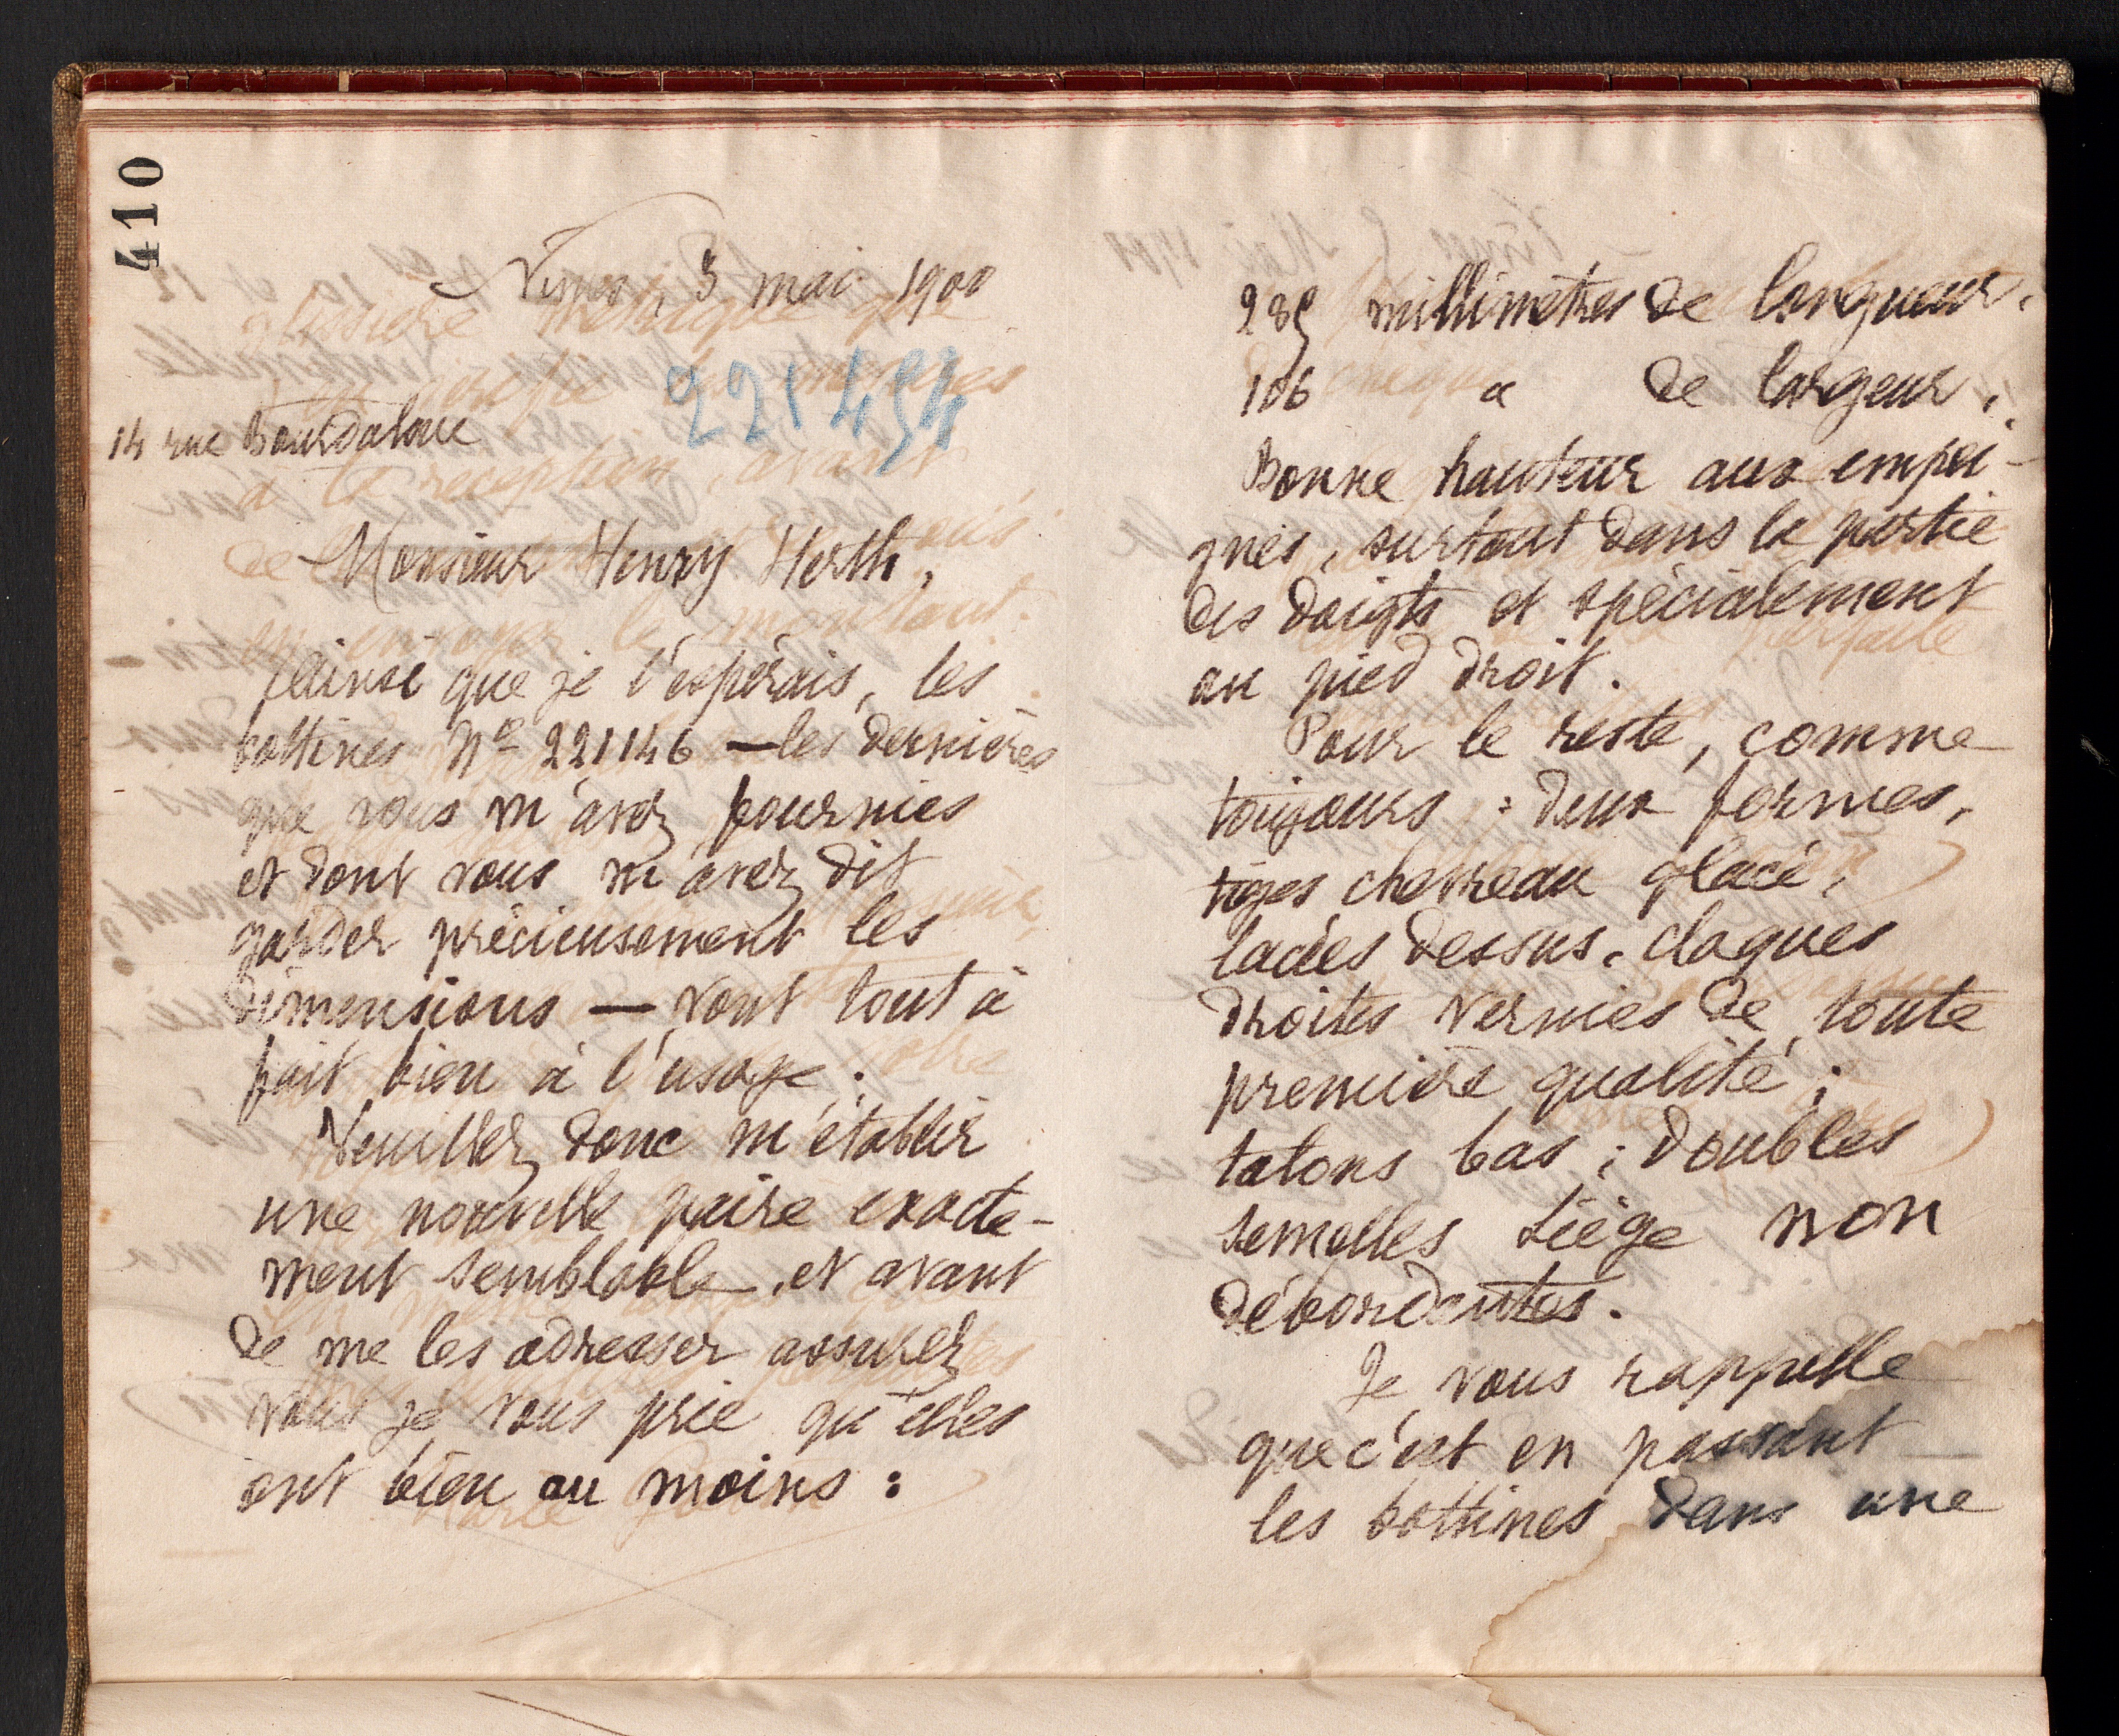 410
Nimes, 5 mai 1900
221454
14 rue Bourdaloue
Monsieur Henry Herth,
Ainsi que je l'espérais, les
bottines Nº 221146 — les dernières
que vous m'avez fournies
et dont vous m'avez dit
garder précieusement les
dimensions — vont tout à
fait bien à l'usage.
Veuillez donc m'établir
une nouvelle paire exacte-
ment semblable, et avant
de me les adresser assurez
vous je vous prie qu'elles
ont bien au moins :
285 millimètres de longueur.
106 " de largeur.
Bonne hauteur aux empei-
gnes, surtout dans la partie
des doigts et spécialement
au pied droit.
Pour le reste, comme
toujours : deux formes,
tiges chevreau glacé,
lacées dessus, claques
droites vernies de toute
première qualité ;
talons bas ; doubles
semelles liège non
débordantes.
Je vous rappelle
que c'est en passant
les bottines dans une